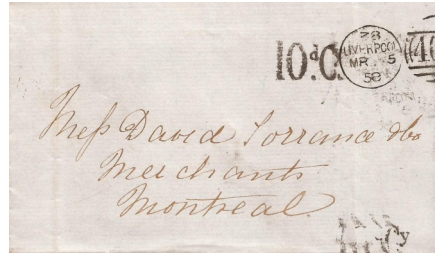 10d.C
28
LIVERPOOL
MR 5
58
Mess David Torrance &Co
Merchants
Montreal
Cy